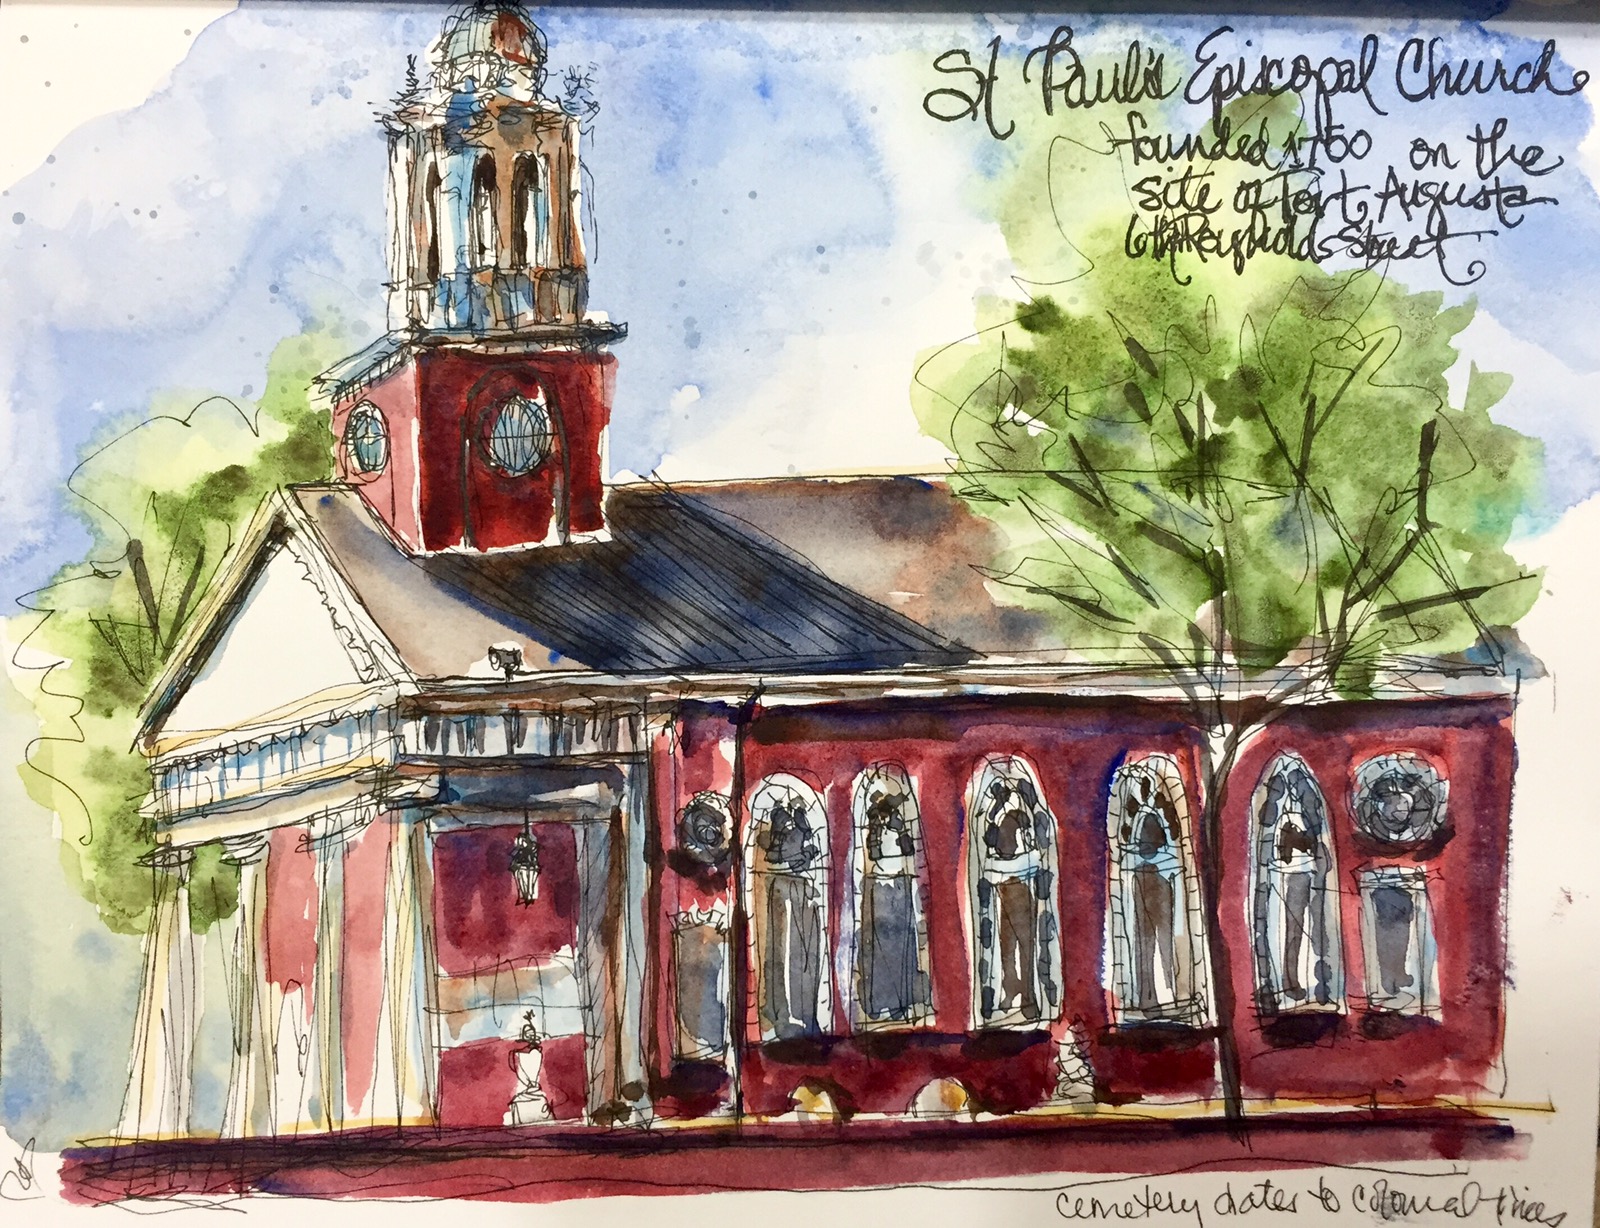 St Paul's Episcopal Church
founded 1760 on the
site of Fort Augusta
6th Reynolds Street
cemetery dates to colonial times